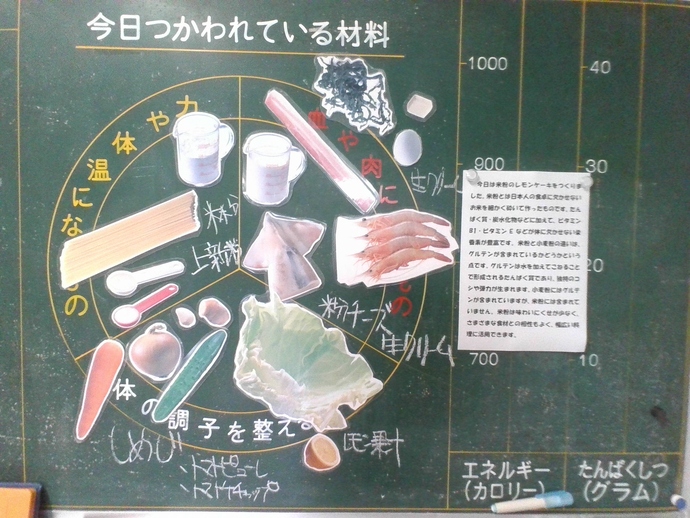 今日つかわれている材料
力や体温になるもの
血や肉になるもの
体の調子を整える
米粉
上新粉
生クリーム
粉チーズ
生クリーム
しめじ
レモン果汁
・トマトピューレ
・トマトケチャップ
1000
900
700
40
30
20
10
エネルギー
(カロリー)
たんぱくしつ
(グラム)
今日は米粉のレモンケーキをつくりま
した。米粉とは日本人の食卓に欠かせない
お米を細かく砕いて作ったものです。たん
ぱく質・炭水化物などに加えて、ビタミン
B1・ビタミンEなどが体に欠かせない栄
養素が豊富です。米粉と小麦粉の違いは、
グルテンが含まれているかどうかという
点です。グルテンは水を加えてこねること
で形成されるたんぱく質であり、独特のコ
シや弾力が生まれます。小麦粉にはグルテ
ンが含まれていますが、米粉には含まれて
いません。米粉は味わいにくせが少なく、
さまざまな食材との相性もよく、幅広い料
理に活用できます。